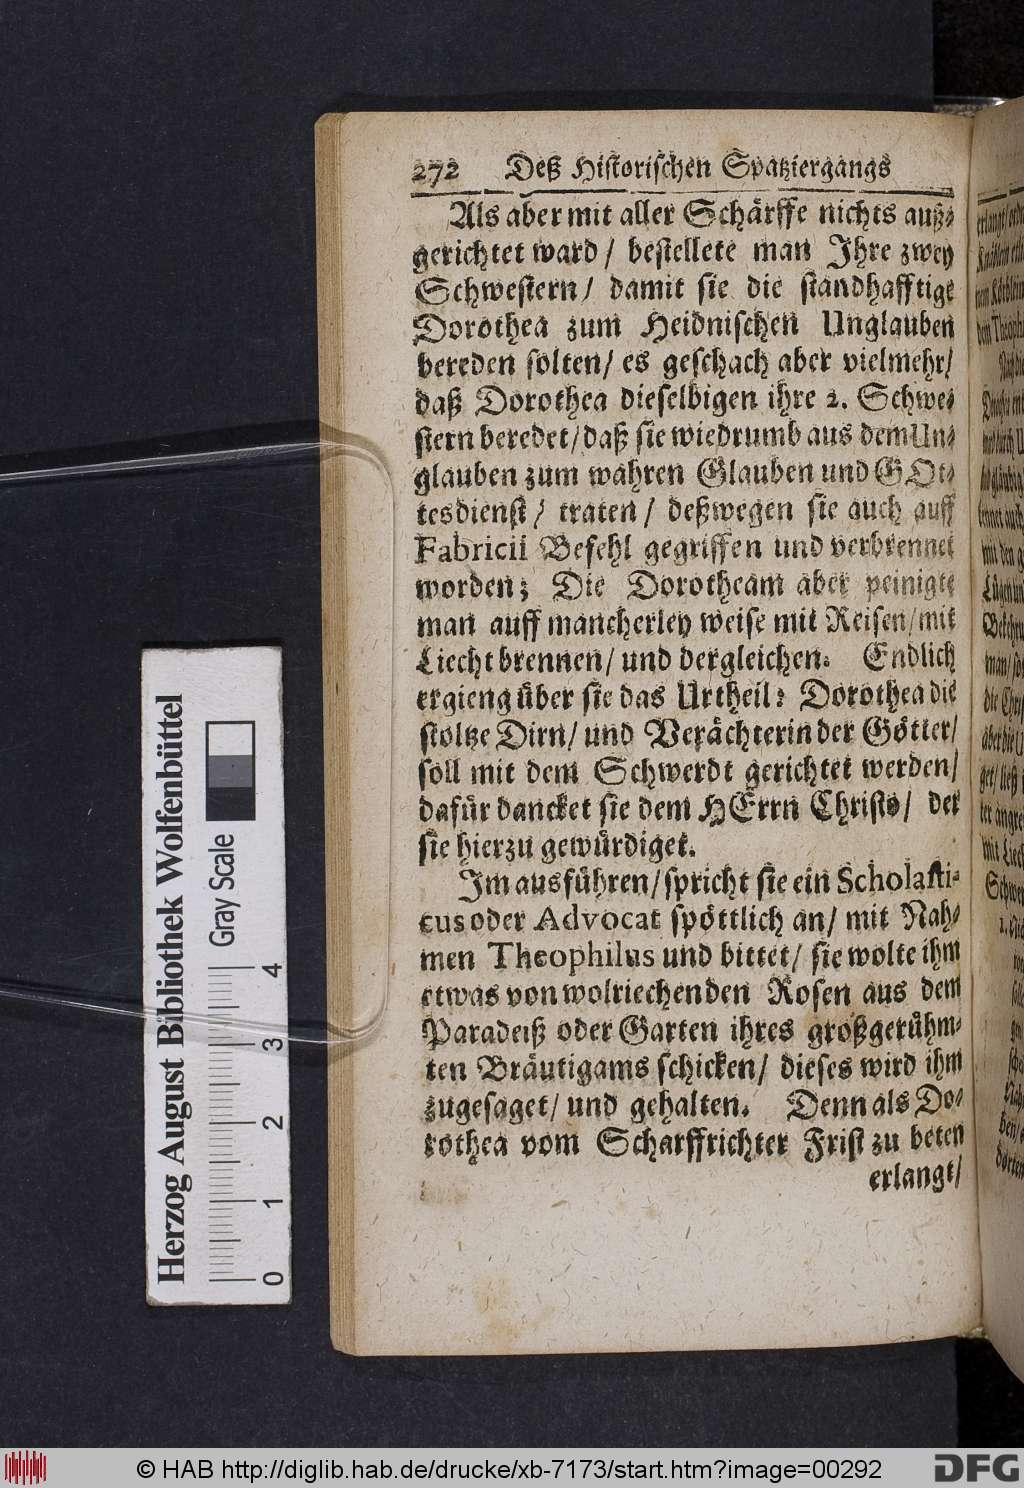 272 Deß Historischen Spatziergangs
Als aber mit aller Schärffe nichts auß-
gerichtet ward / bestellete man Ihre zwey
Schwestern / damit sie die standhafftige
Dorothea zum Heidnischen Unglauben
bereden solten / es geschach aber vielmehr /
daß Dorothea dieselbigen ihre 2. Schwe-
stern beredet / daß sie wiedrumb aus dem Un-
glauben zum wahren Glauben und GOt-
tesdienst / traten / deßwegen sie auch auff
Fabricii Befehl gegriffen und verbrennet
worden; Die Dorotheam aber peinigte
man auff mancherley weise mit Reisen / mit
Liecht brennen / und dergleichen. Endlich
ergieng über sie das Urtheil: Dorothea die
stoltze Dirn / und Verächterin der Götter /
soll mit dem Schwerdt gerichtet werden /
dafür dancket sie dem HErrn Christo / der
sie hierzu gewürdiget.
Im ausführen / spricht sie ein Scholasti-
cus oder Advocat spöttlich an / mit Nah-
men Theophilus und bittet / sie wolte ihm
etwas von wolriechenden Rosen aus dem
Paradeiß oder Garten ihres großgerühm-
ten Bräutigams schicken / dieses wird ihm
zugesaget / und gehalten. Denn als Do-
rothea vom Scharffrichter Frist zu beten
erlangt /
Herzog August Bibliothek Wolfenbüttel
Gray Scale
0 1 2 3 4
© HAB http://diglib.hab.de/drucke/xb-7173/start.htm?image=00292
DFG